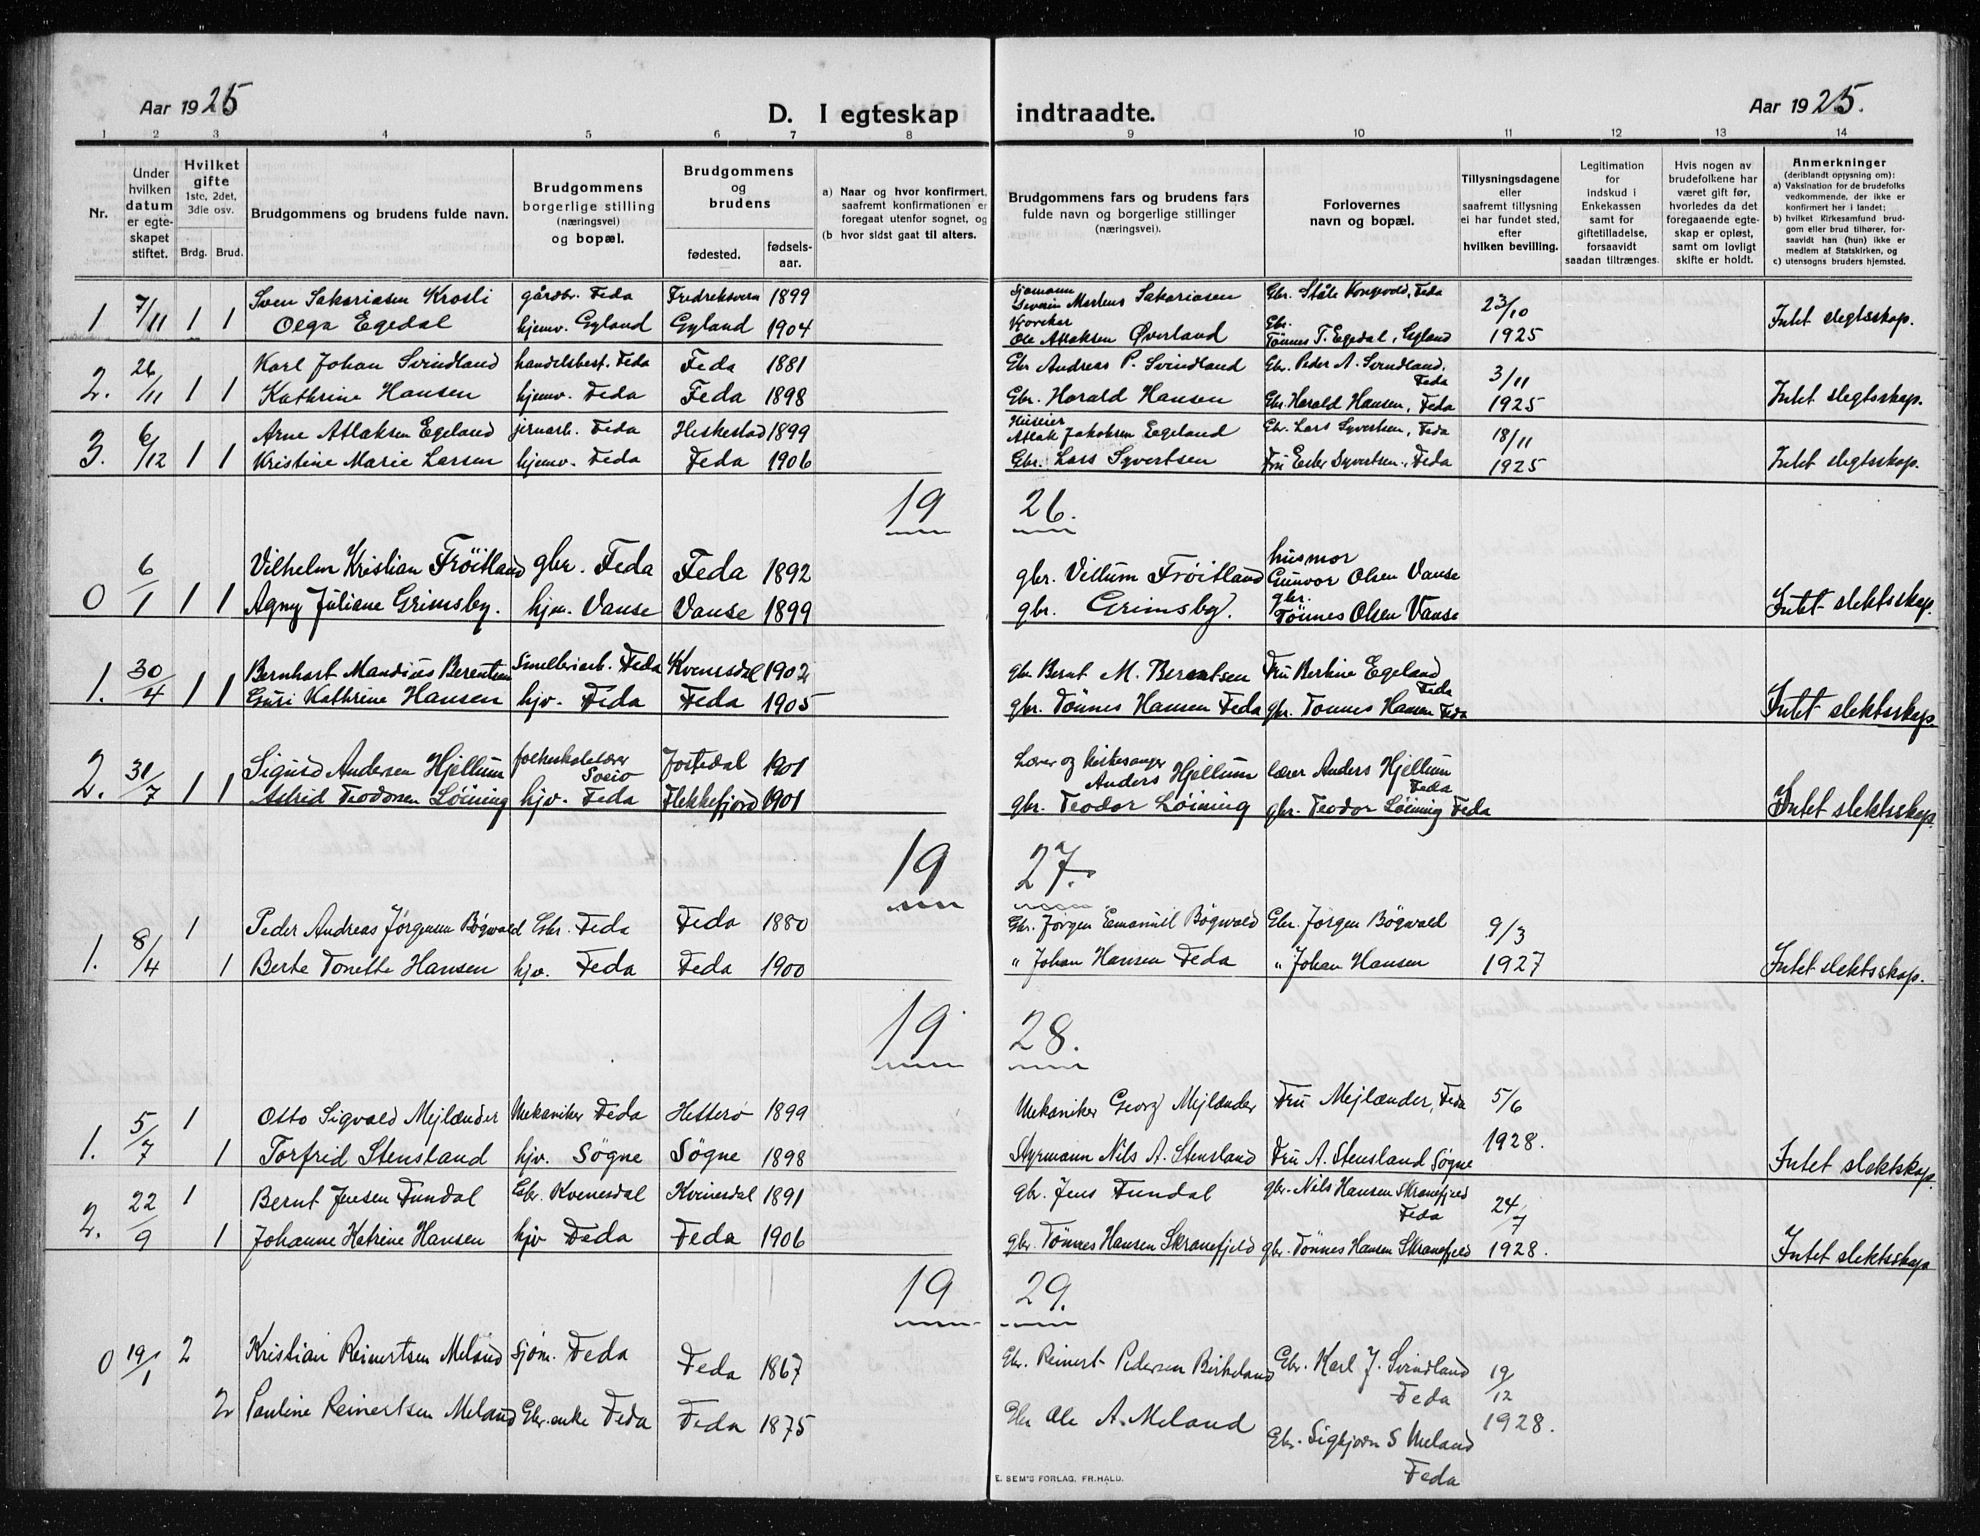 Aar 1925
D. I egteskap indtraadte.
Aar 1925.
1 2 3 4 5 6 7 8 9 10 11 12 13 14
Nr.
Under hvilken datum er egteskapet stiftet.
Hvilket gifte 1ste, 2det, 3die osv.
Brdg. Brud.
Brudgommens og brudens fulde navn.
Brudgommens borgerlige stilling (næringsvei) og bopæl.
Brudgommens og brudens
fødested. fødselsaar.
a) Naar og hvor konfirmert, saafremt konfirmationen er foregaat utenfor sognet, og
(b hvor sidst gaat til alters.
Brudgommens fars og brudens fars fulde navn og borgerlige stillinger (næringsvei).
Forlovernes navn og bopæl.
Tillysningsdagene eller saafremt tillysning ei har fundet sted, efter hvilken bevilling.
Legitimation for indskud i Enkekassen samt for giftetilladelse, forsaavidt saadan tiltrænges.
Hvis nogen av brudefolkene har været gift før, hvorledes da det foregaaende egteskap er opløst, samt om lovligt skifte er holdt.
Anmerkninger (deriblandt opysning om):
a) Vaksination for de brudefolks vedkommende, der ikke er konfirmert her i landet;
b) hvilket Kirkesamfund brudgom eller brud tilhører, forsaavidt han (hun) ikke er medlem af Statskirken, og
c) utensogns bruders hjemsted.
1 7/11 1 1 Sven Sakariasen Krosli gårdbr. Feda Fredreksvern 1899 Sjømann Severin Martens Sakariasen Gbr. Ståle Kongevold, Feda 23/10
Olga Egedal hjemv. Gyland Gyland 1904 Ole Atlaksen Øverland Gbr. Tønnes T. Egedal, Gyland 1925 Intet slegtsskap.
2. 26/11 1 1 Karl Johan Svindland handelsbest. Feda Feda 1881 Gbr Andreas P. Svindland Gbr. Peder A. Svindland, Feda 3/11
Kathrine Hansen hjemv. Feda Feda 1898 Gbr. Harald Hansen Gbr. Harald Hansen, Feda 1925 Intet slegtsskap.
3. 6/12 1 1 Arne Atlaksen Egeland jernarb. Feda Heskestad 1899 Huseier Atlak Jakobsen Egeland Gbr. Lars Syvertsen, Feda 18/11
Kristine Marie Larsen hjemv. Feda Feda 1906 Gbr. Lars Syvertsen Fru Ester Syvertsen, Feda 1925 Intet slegtsskap.
19 26.
0 6/1 1 1 Vilhelm Kristian Frøitland gbr. Feda Feda 1892 gbr. Villum Frøitland husmor Gunvor Olsen Vanse
Agny Juliane Grimsby. hjm. Vanse Vanse 1899 gbr. Grimsby. gbr. Tønnes Olsen Vanse Intet slektsskap.
1. 30/4 1 1 Bernhart Mandius Berentsen Smelteriarb. Feda Kvinesdal 1902 gbr Bernt M. Berentsen Fru Bertine Egeland Feda
Guri Kathrine Hansen hjv. Feda Feda 1905 gbr. Tønnes Hansen Feda gbr. Tønnes Hansen Feda Intet slektsskap
2. 31/7 1 1 Sigurd Andersen Hjellum folkeskolelærer Sveio Jostedal 1901 Lærer og kirkesanger Anders Hjellum lærer Anders Hjellum Feda
Astrid Teodorsen Løining hjv. Feda Flekkefjord 1901 gbr. Teodor Løining gbr. Teodor Løining Feda Intet slektsskap.
19 27.
1. 8/4 1 Peder Andreas Jørgensen Bøgwald Gbr. Feda Feda 1880 Gbr. Jørgen Emanuel Bøgwald Gbr. Jørgen Bøgwald 9/3
1 Berte Tonette Hansen hjv. Feda Feda 1900 " Johan Hansen Feda " Johan Hansen 1927 Intet slektsskap.
19 28.
1. 5/7 1 Otto Sigvald Mejlænder Mekaniker Feda Hetterø 1899 Mekaniker Georg Mejlænder Fru Mejlænder, Feda 5/6
1 Torfrid Stensland hjv. Søgne Søgne 1898 Styrmann Nils A. Stensland Fru A. Stensland Søgne 1928. Intet slektskap.
2. 22/9 1 Bernt Jensen Fundal Gbr. Kvinesdal Kvinesdal 1891 gbr. Jens Fundal gbr. Nils Hansen Skranefjeld Feda 24/7
1 Johanne Katrine Hansen hjv Feda Feda 1906 gbr. Tønnes Hansen Skranefjeld gbr. Tønnes Hansen Skranefjeld 1928. Intet slektsskap
19 29.
0 19/1 2 Kristian Reinertsen Meland Sjøm. Feda Feda 1867 Gbr. Reinert Pedersen Birkeland Gbr. Karl J. Svindland Feda 19/12
2 Pauline Reinertsen Meland Gbr. enke Feda Feda 1875 Gbr Ole A. Meland Gbr. Sigbjørn S Meland Feda 1928.
E. SEM'S FORLAG, FR.HALD.